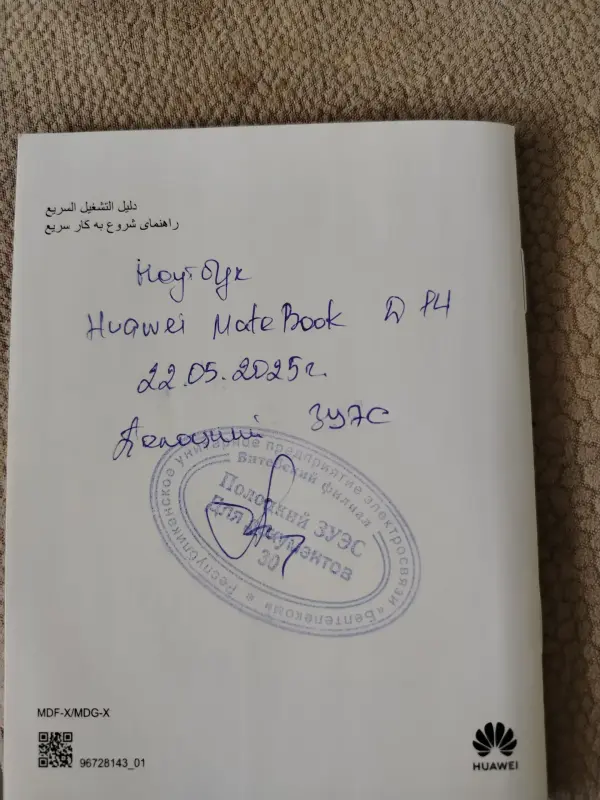 دليل التشغيل السريع
راهنمای شروع به کار سریع
Ноутбук
Huawei MateBook D 14
22.05.2025г.
Полоцкий ЗУЭС
Республиканское унитарное предприятие электросвязи «Белтелеком»
Витебский филиал
Полоцкий ЗУЭС
Для документов
30
MDF-X/MDG-X
96728143_01
HUAWEI